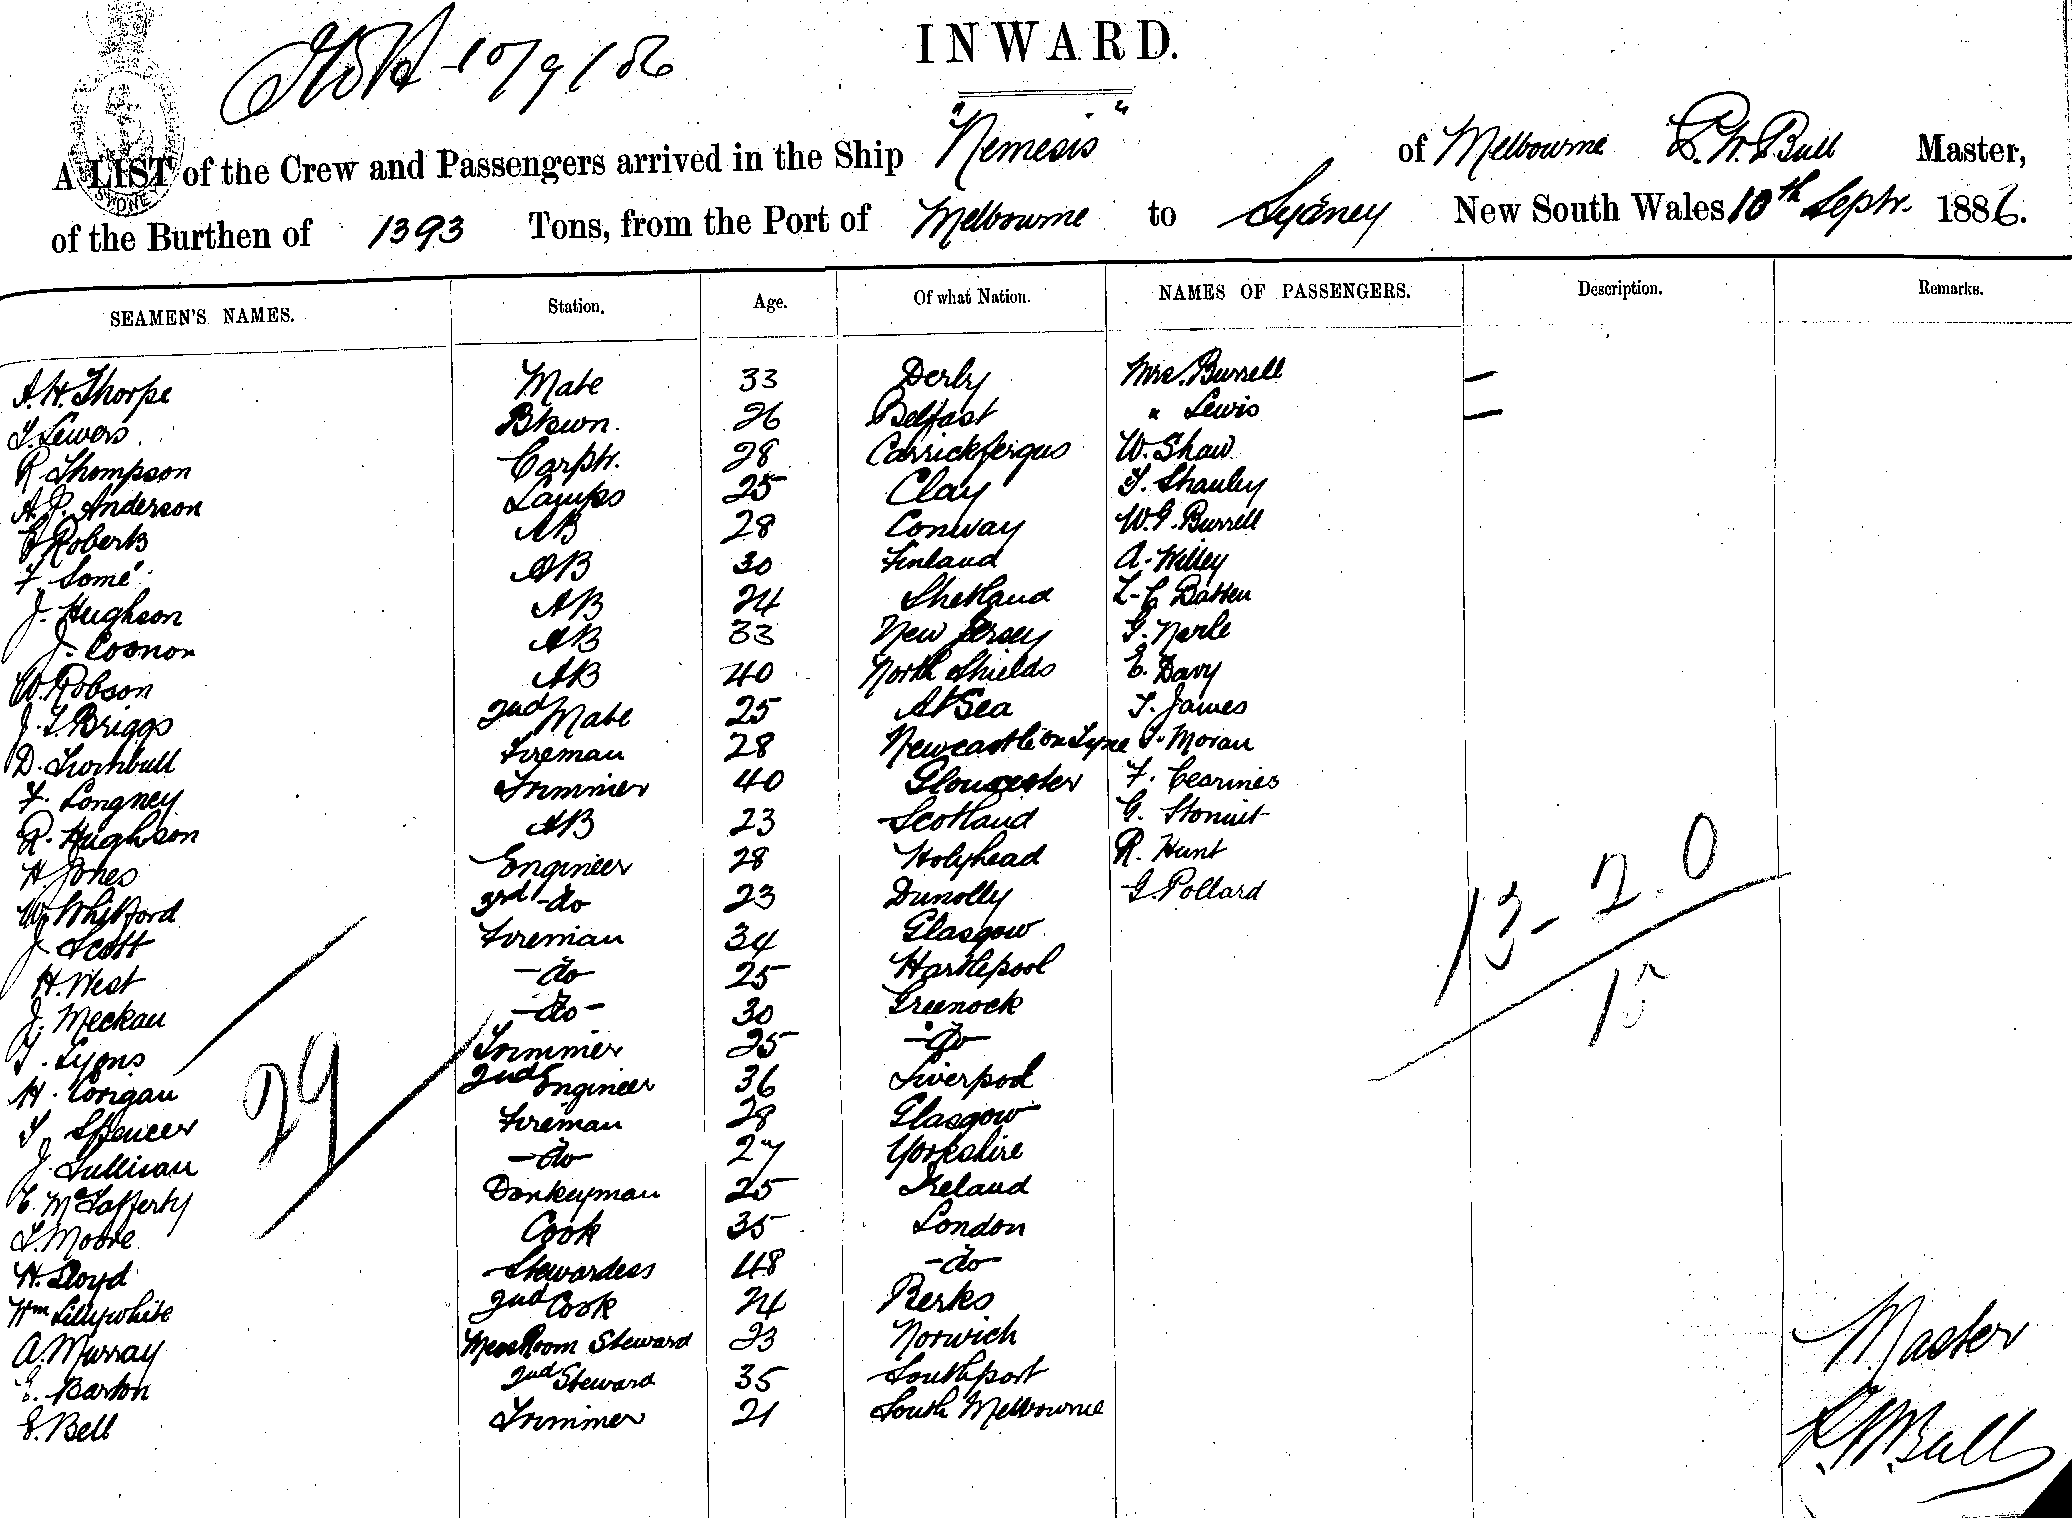 INWARD.
10/9/86
A LIST of the Crew and Passengers arrived in the Ship "Nemesis" of Melbourne W. Bull Master,
of the Burthen of 1393 Tons, from the Port of Melbourne to Sydney New South Wales 10th Septr. 1886.
SEAMEN'S NAMES. Station. Age. Of what Nation. NAMES OF PASSENGERS. Description. Remarks.
A. H. Thorpe Mate 33 Derby Mrs. Burrell —
T. Lewers Btswn. 26 Belfast " Lewis —
R Thompson Carptr. 28 Carrickfergus W. Shaw
A. J. Anderson Lamps 25 Clay T. Stanley
Roberts AB 28 Conway W. G. Burrell
F. Somé AB 30 Finland A. Willey
J. Hughson AB 24 Shetland L. C Batten
J. Coonon AB 33 New Jersey G. Nerle
W. Robson AB 40 North Shields E. Davy
J. T. Briggs 2nd Mate 25 At Sea T. James
D. Turnbull Fireman 28 Newcastle on Tyne T. Moran
F. Longney Trimmer 40 Gloucester F.
R. Hughson AB 23 Scotland G.
H. Jones Engineer 28 Holyhead R. Hunt
W. Whitford 3rd -do 23 Dunolly G. Pollard
J. Scott Fireman 34 Glasgow
H. West -do- 25 Hartlepool
J. Meckan -do- 30 Greenock
T. Lyons Trimmer 25 -do-
H. Corigan 2nd Engineer 36 Liverpool
T. Spencer Fireman 28 Glasgow
J. Sullivan -do- 27 Yorkshire
E. McLafferty Donkeyman 25 Ireland
T. Moore Cook 35 London
H. Lloyd Stewardess 48 -do-
Wm Lillywhite 2nd Cook 24 Berks
A. Murray Mess Room Steward 23 Norwich
E. Barton 2nd Steward 35 Southport
E. Bell Trimmer 21 South Melbourne
29
13-2.0
15
Master
W. Bull